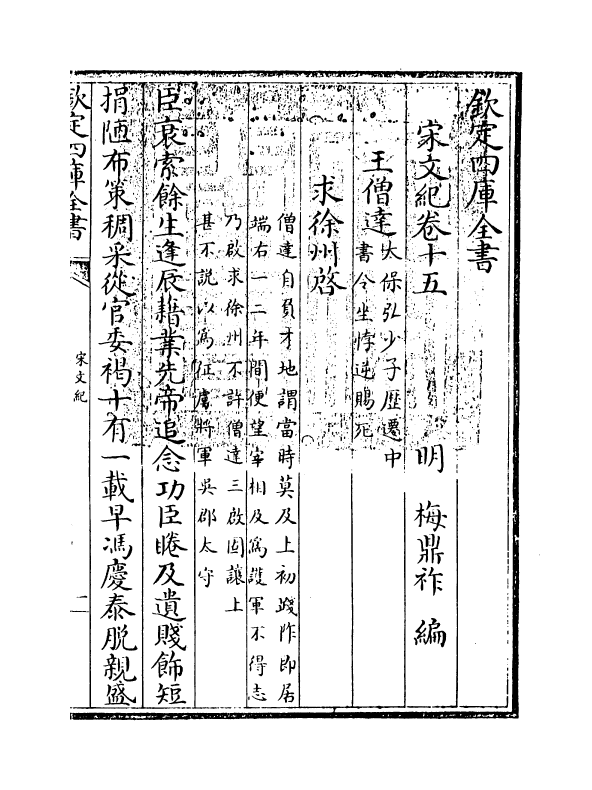 欽定四庫全書
宋文紀卷十五
明 梅鼎祚 編
王僧達
太保弘少子歴遷中
書令坐悖逆賜死
求徐州啓
僧達自負才地謂當時莫及上初踐阼即居
端右一二年間便望宰相及為護軍不得志
乃啟求徐州不許僧達三啟固讓上
甚不説以為征虜將軍吳郡太守
臣衰索餘生逢辰藉業先帝追念功臣睠及遺賤飾短
捐陋布策稠采從官委褐十有一載早馮慶泰脱親盛
欽定四庫全書
宋文紀